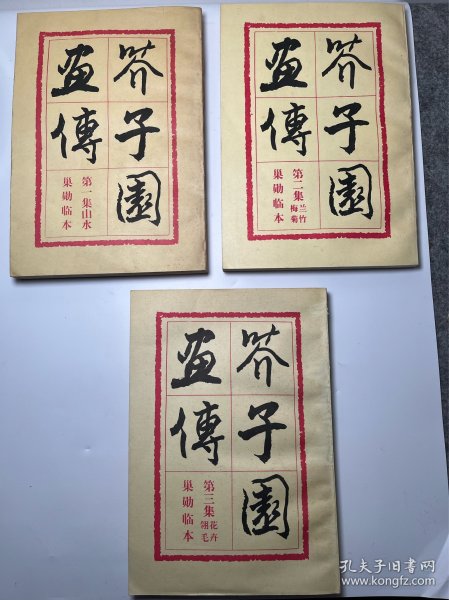 芥子園
画傳
第一集山水
巢勋临本
芥子園
画傳
第二集兰竹梅菊
巢勋临本
芥子園
画傳
第三集花卉翎毛
巢勋临本
孔夫子旧书网
www.kongfz.com